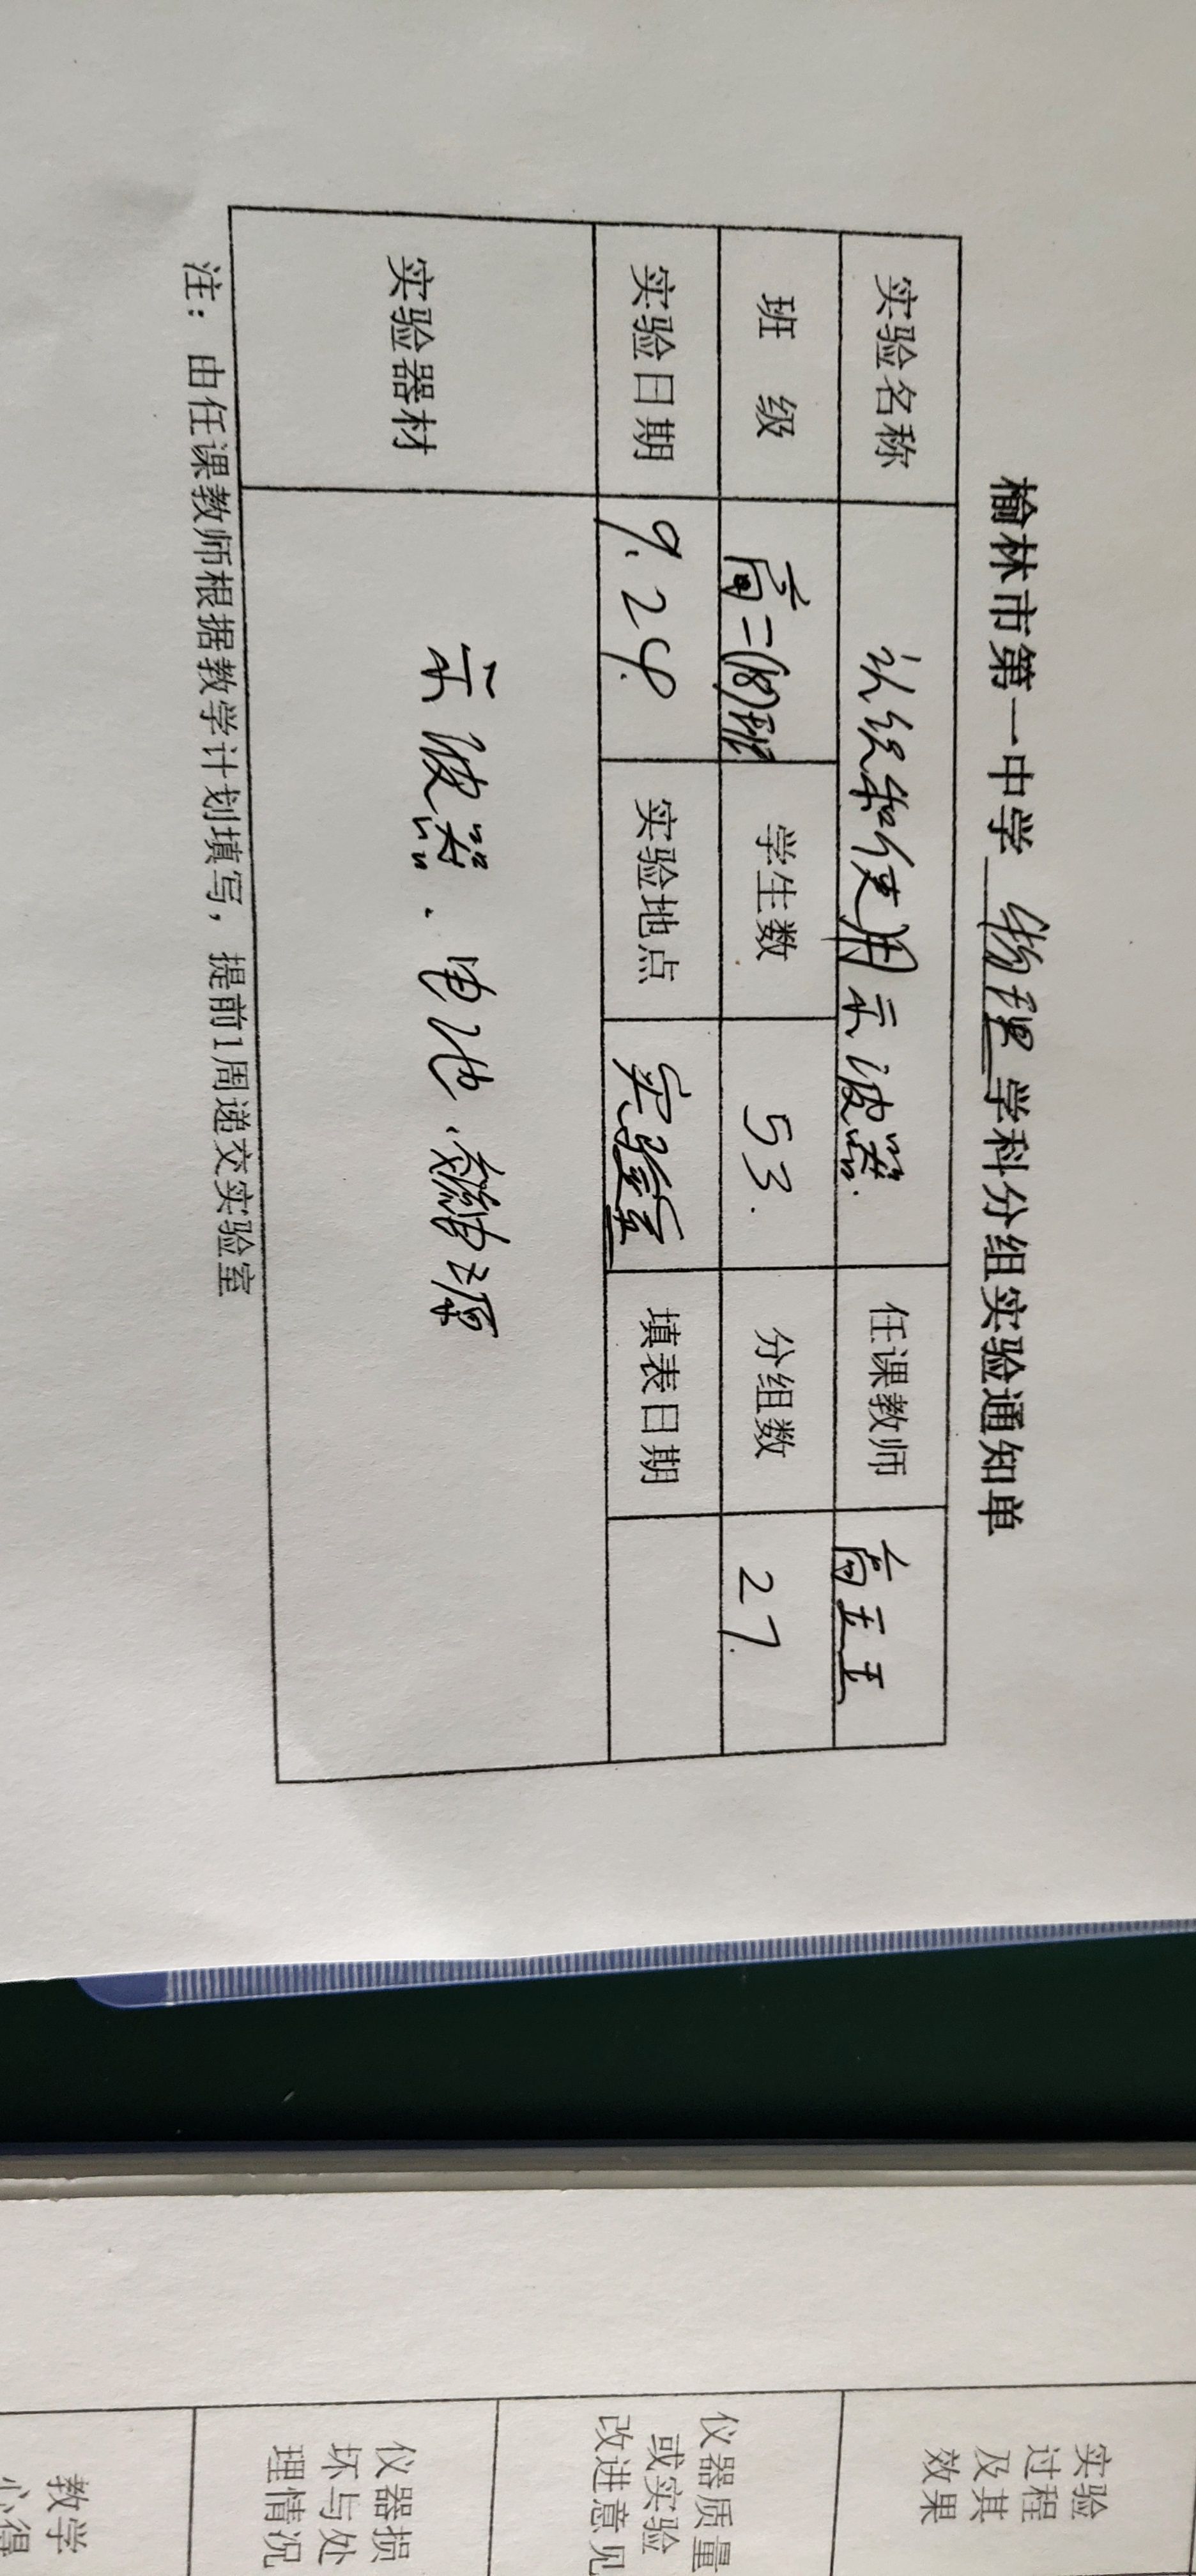 榆林市第一中学 物理 学科分组实验通知单
实验名称 认织和使用示波器. 任课教师
班 级 高二(18)班 学生数 53. 分组数 27.
实验日期 9.24. 实验地点 实验室 填表日期
实验器材 示波器.电池.
注:由任课教师根据教学计划填写,提前1周递交实验室
实验
过程
及其
效果
仪器质量
或实验
改进意见
仪器损
坏与处
理情况
教学
心得